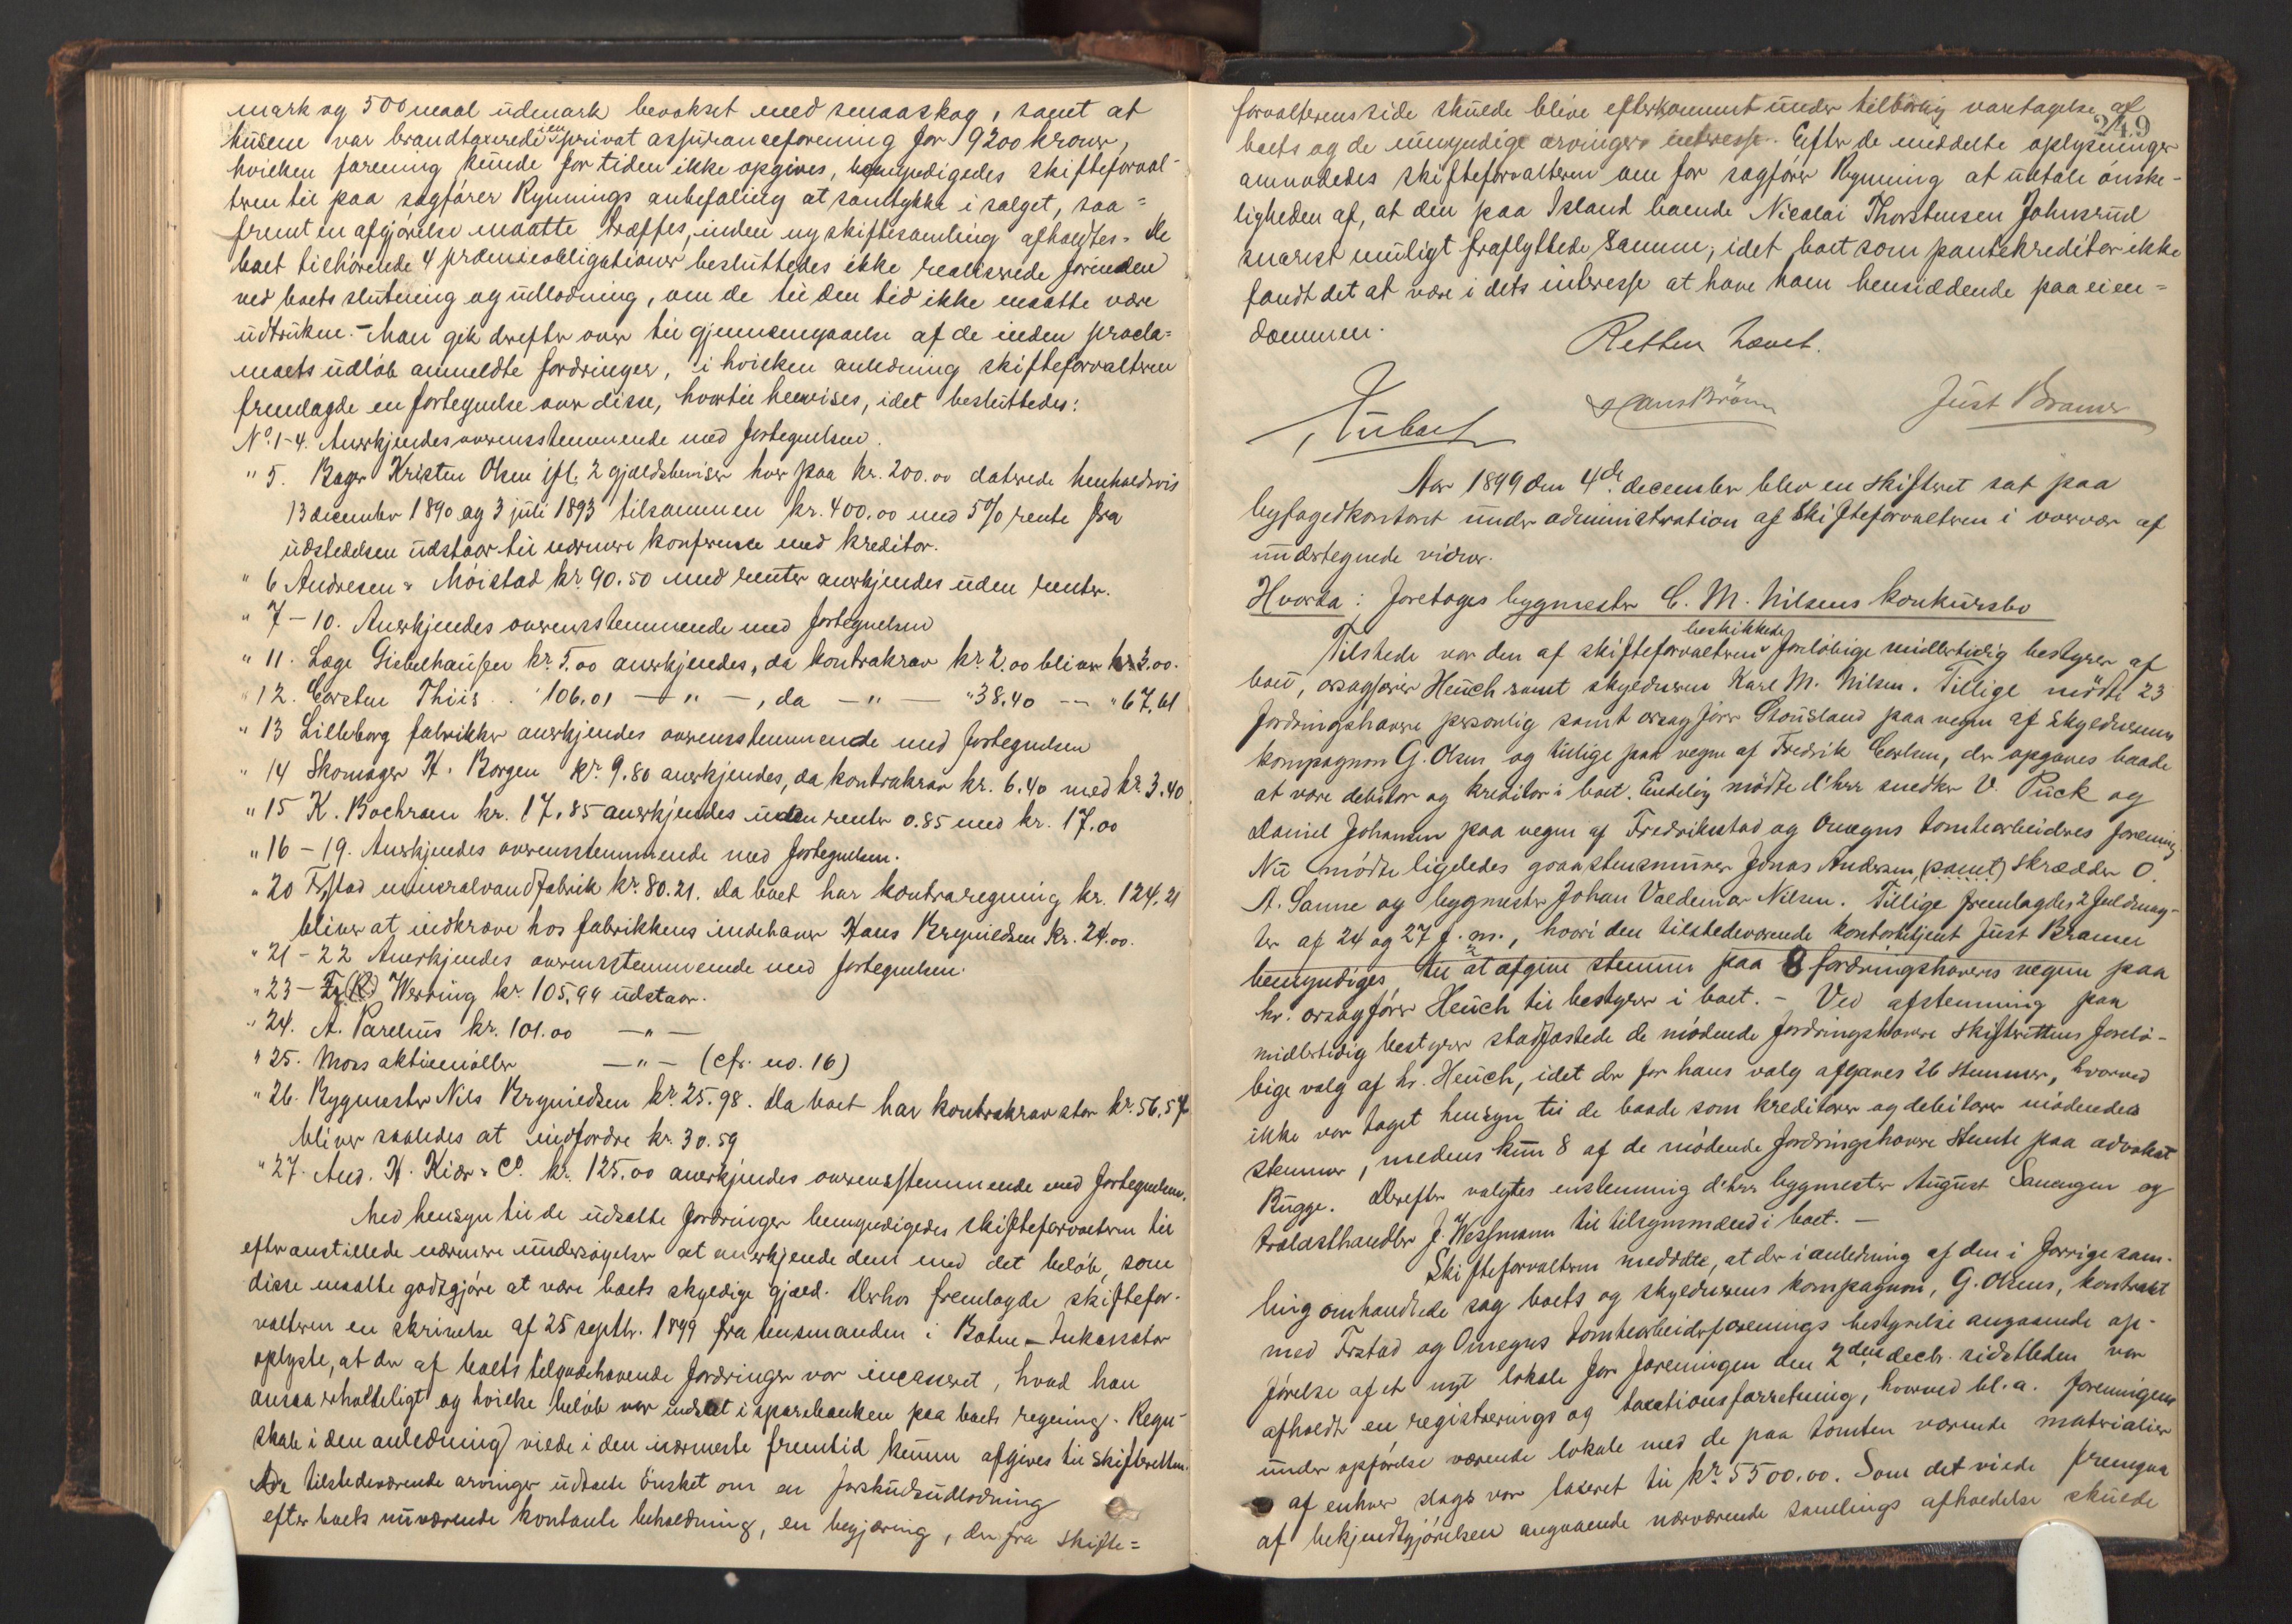 mark og 500 maal udmark bevokset med smaaskog, samt at
husene var brandtaxerede i en privat assuranceforening for 9200 kroner,
hvilken forening kunde for tiden ikke opgives, bemyndigedes skifteforval-
teren til paa sagfører Rynnings anbefaling at samtykke i salget, saa=
fremt en afgjørelse maatte træffes, inden ny skiftesamling afholdtes. De
boet tilhørende 4 præmieobligationer besluttedes ikke realiserede forinden
ved boets slutning og udlodning, om de til den tid ikke maatte være
udtrukne. - Man gik derefter over til gjennemgaaelse af de inden procla=
maets udløb anmeldte fordringer, i hvilken anledning skifteforvalteren
fremlagde en fortegnelse over disse, hvortil henvises, idet besluttedes:
No. 1-4. Anerkjendes overensstemmende med fortegnelsen.
" 5. Bager Kristen Olsen ifl. 2 gjældsbeviser hver paa kr. 200.00 daterede henholdsvis
13 december 1890 og 3 juli 1893 tilsammen kr. 400.00 med 5% rente fra
udstedelsen udstaar til nærmere konference med kreditor.
" 6 Andresen & Møistad kr. 90.50 med renter anerkjendes uden renter.
" 7-10. Anerkjendes overensstemmende med fortegnelsen
" 11. Læge Giebelhausen kr. 5.00 anerkjendes, da kontrakrav kr. 2.00 bliver kr. 3.00.
" 12. Carsten Thiis . . 106.01 — " — , da — " — " 38.40 — " 67.61
" 13 Lilleborg fabrikker anerkjendes overensstemmende med fortegnelsen
" 14 Skomager H. Borgen kr. 9.80 anerkjendes, da kontrakrav kr. 6.40 med kr. 3.40
" 15 K. Bochram kr. 17.85 anerkjendes uden renter 0.85 med kr. 17.00
" 16-19. Anerkjendes overensstemmende med fortegnelsen.
" 20 Frstad mineralvandfabrik kr. 80.21. Da boet har kontraregning kr. 124.21
bliver at indkræve hos fabrikkens indehaver Hans Brynildsen kr. 24.00.
" 21-22 Anerkjendes overensstemmende med fortegnelsen.
" 23 - Fr (R) Werring kr. 105.94 udstaar.
" 24. A. Parelius kr. 101.00 — " —
" 25. Moss aktiemøller — " — (cfr. no. 16)
" 26. Bygmester Nils Brynildsen kr. 25.98. Da boet har kontrakrav stor kr. 56.57
bliver saaledes at indfordre kr. 30.59
" 27. And. H. Kiær & Co. kr. 125.00 anerkjendes overensstemmende med fortegnelsen.
Med hensyn til de udsatte fordringer bemyndigedes skifteforvalteren til
efter anstillede nærmere undersøgelser at anerkjende dem med det beløb, som
disse maatte godtgjøre at være boets skyldige gjæld. Derhos fremlagde skiftefor-
valteren en skrivelse af 25 septbr. 1899 fra lensmanden i Botne - Inkassator
oplyste, at der af boets tilgodehavende fordringer var incasseret, hvad han
ansaa erholdeligt og hvilke beløb var indsat i sparebanken paa boets regning. Regn-
skab i den anledning vilde i den nærmeste fremtid kunne afgives til skifteretten.
De tilstedeværende arvinger udtalte ønsket om en forskudsudlodning
efter boets nuværende kontante beholdning, en begjæring, der fra skifte=
249
forvalterens side skulde blive efterkommet under tilbørlig varetagelse af
boets og de umyndige arvingers interesse. Efter de meddelte oplysninger
anmodedes skifteforvalteren om for sagfører Rynning at udtale ønske-
ligheden af, at den paa Island boende Nicolai Thorstensen Johnsrud
snarest muligt fraflyttede samme, idet boet som pantekreditor ikke
fandt det at være i dets interesse at have ham hensiddende paa eien=
dommen.
Retten hævet.
Aubert Hans Brönn Just Bramer
Aar 1899 den 4de december blev en skifteret sat paa
byfogedkontoret under administration af skifteforvalteren i overvær af
undertegnede vidner.
Hvorda: Foretoges bygmester C. M. Nilsens konkursbo
Tilstede var den af skifteforvalteren beskikkede foreløbige midlertidig bestyrer af
boet, orsagfører Heuch samt skyldneren Karl M. Nilsen. Tillige mødte 23
fordringshavere personlig samt orsagfører Stousland paa vegne af skyldnerens
kompagnon G. Olsen og tillige paa vegne af Fredrik Carlsen, der opgaves baade
at være debitor og kreditor i boet. Endelig mødte d'hrr snedker V. Puck og
Daniel Johansen paa vegne af Fredrikstad og Omegns tomtearbeideres forening
Nu mødte ligeledes graastensmurer Jonas Andersen, (samt) skrædder O.
A. Sanne og bygmester Johan Valdemar Nilsen. Tillige fremlagdes 2 fuldmag-
ter af 24 og 27 f. m., hvori den tilstedeværende kontorbetjent Just Bramer
bemyndiges til at afgive stemme paa 8 fordringshaveres vegne paa
hr. orsagfører Heuch til bestyrer i boet. - Ved afstemning paa
midlertidig bestyrer stadfæstede de mødende fordringshavere skifterettens forelø-
bige valg af hr. Heuch, idet der for hans valg afgaves 26 stemmer, hvorved
ikke var taget hensyn til de baade som kreditorer og debitorer mødendes
stemmer, medens kun 8 af de mødende fordringshavere stemte paa advokat
Bugge. Derefter valgtes enstemmig d'hrr bygmester August Sanengen og
trælasthandler J. Wessmann til tilsynsmænd i boet. —
Skifteforvalteren meddelte, at der i anledning af den i forrige sam-
ling omhandlede sag boets og skyldnerens kompagnon, G. Olsens, kontrakt
med Frstad og Omegns tomtearbeiderforenings bestyrelse angaaende op-
førelse af et nyt lokale for foreningen den 2den decbr. sidstleden var
afholdt en registrerings og taxationsforretning, hvorved bl. a. foreningens
under opførelse værende lokale med de paa tomten værende materialier
af enhver slags var taxeret til kr. 5500.00. Som det vilde fremgaa
af bekjendtgjørelsen angaaende nærværende samlings afholdelse skulde